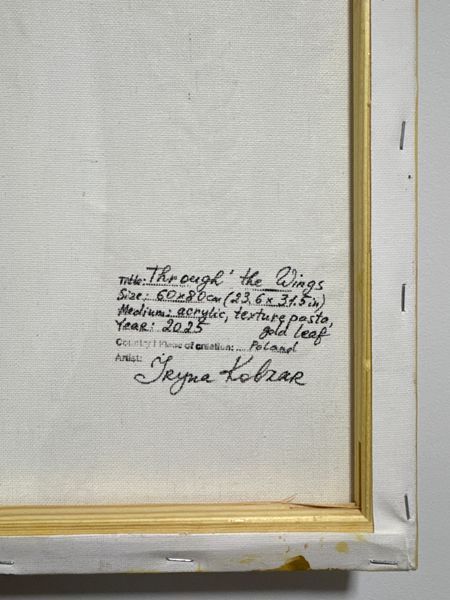 Title: Through' the Wings
Size: 60x80cm (23,6 x 31.5 in)
Medium: acrylic, texture pasta,
gold leaf
Year: 2025
Country | Place of creation: Poland
Artist:
Iryna Kobzar